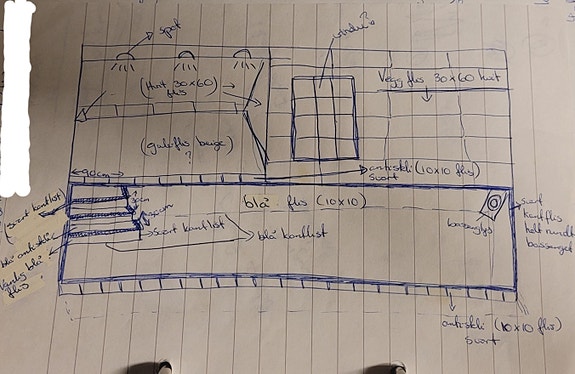 spot
vindu?
(Hvit 30x60)
flis
Vegg flis 30x60 hvit
(gulvflis beige)
?
antiskli (10x10 flis)
svart
90cm
blå flis (10x10)
(svart kantlist)
blå antiskli
Vanlig blå
flis
svart kantlist
blå kantlist
bassenglys
svart
kantflis
helt rundt
bassenget
antiskli (10x10 flis)
svart